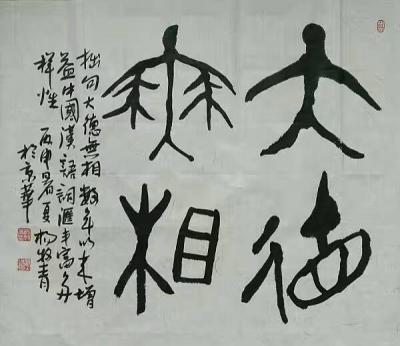 大德
無相
拙句大德無相数年以来增
益中國漢語詞匯丰富多
样性 丙申暑夏楊牧青
於京華